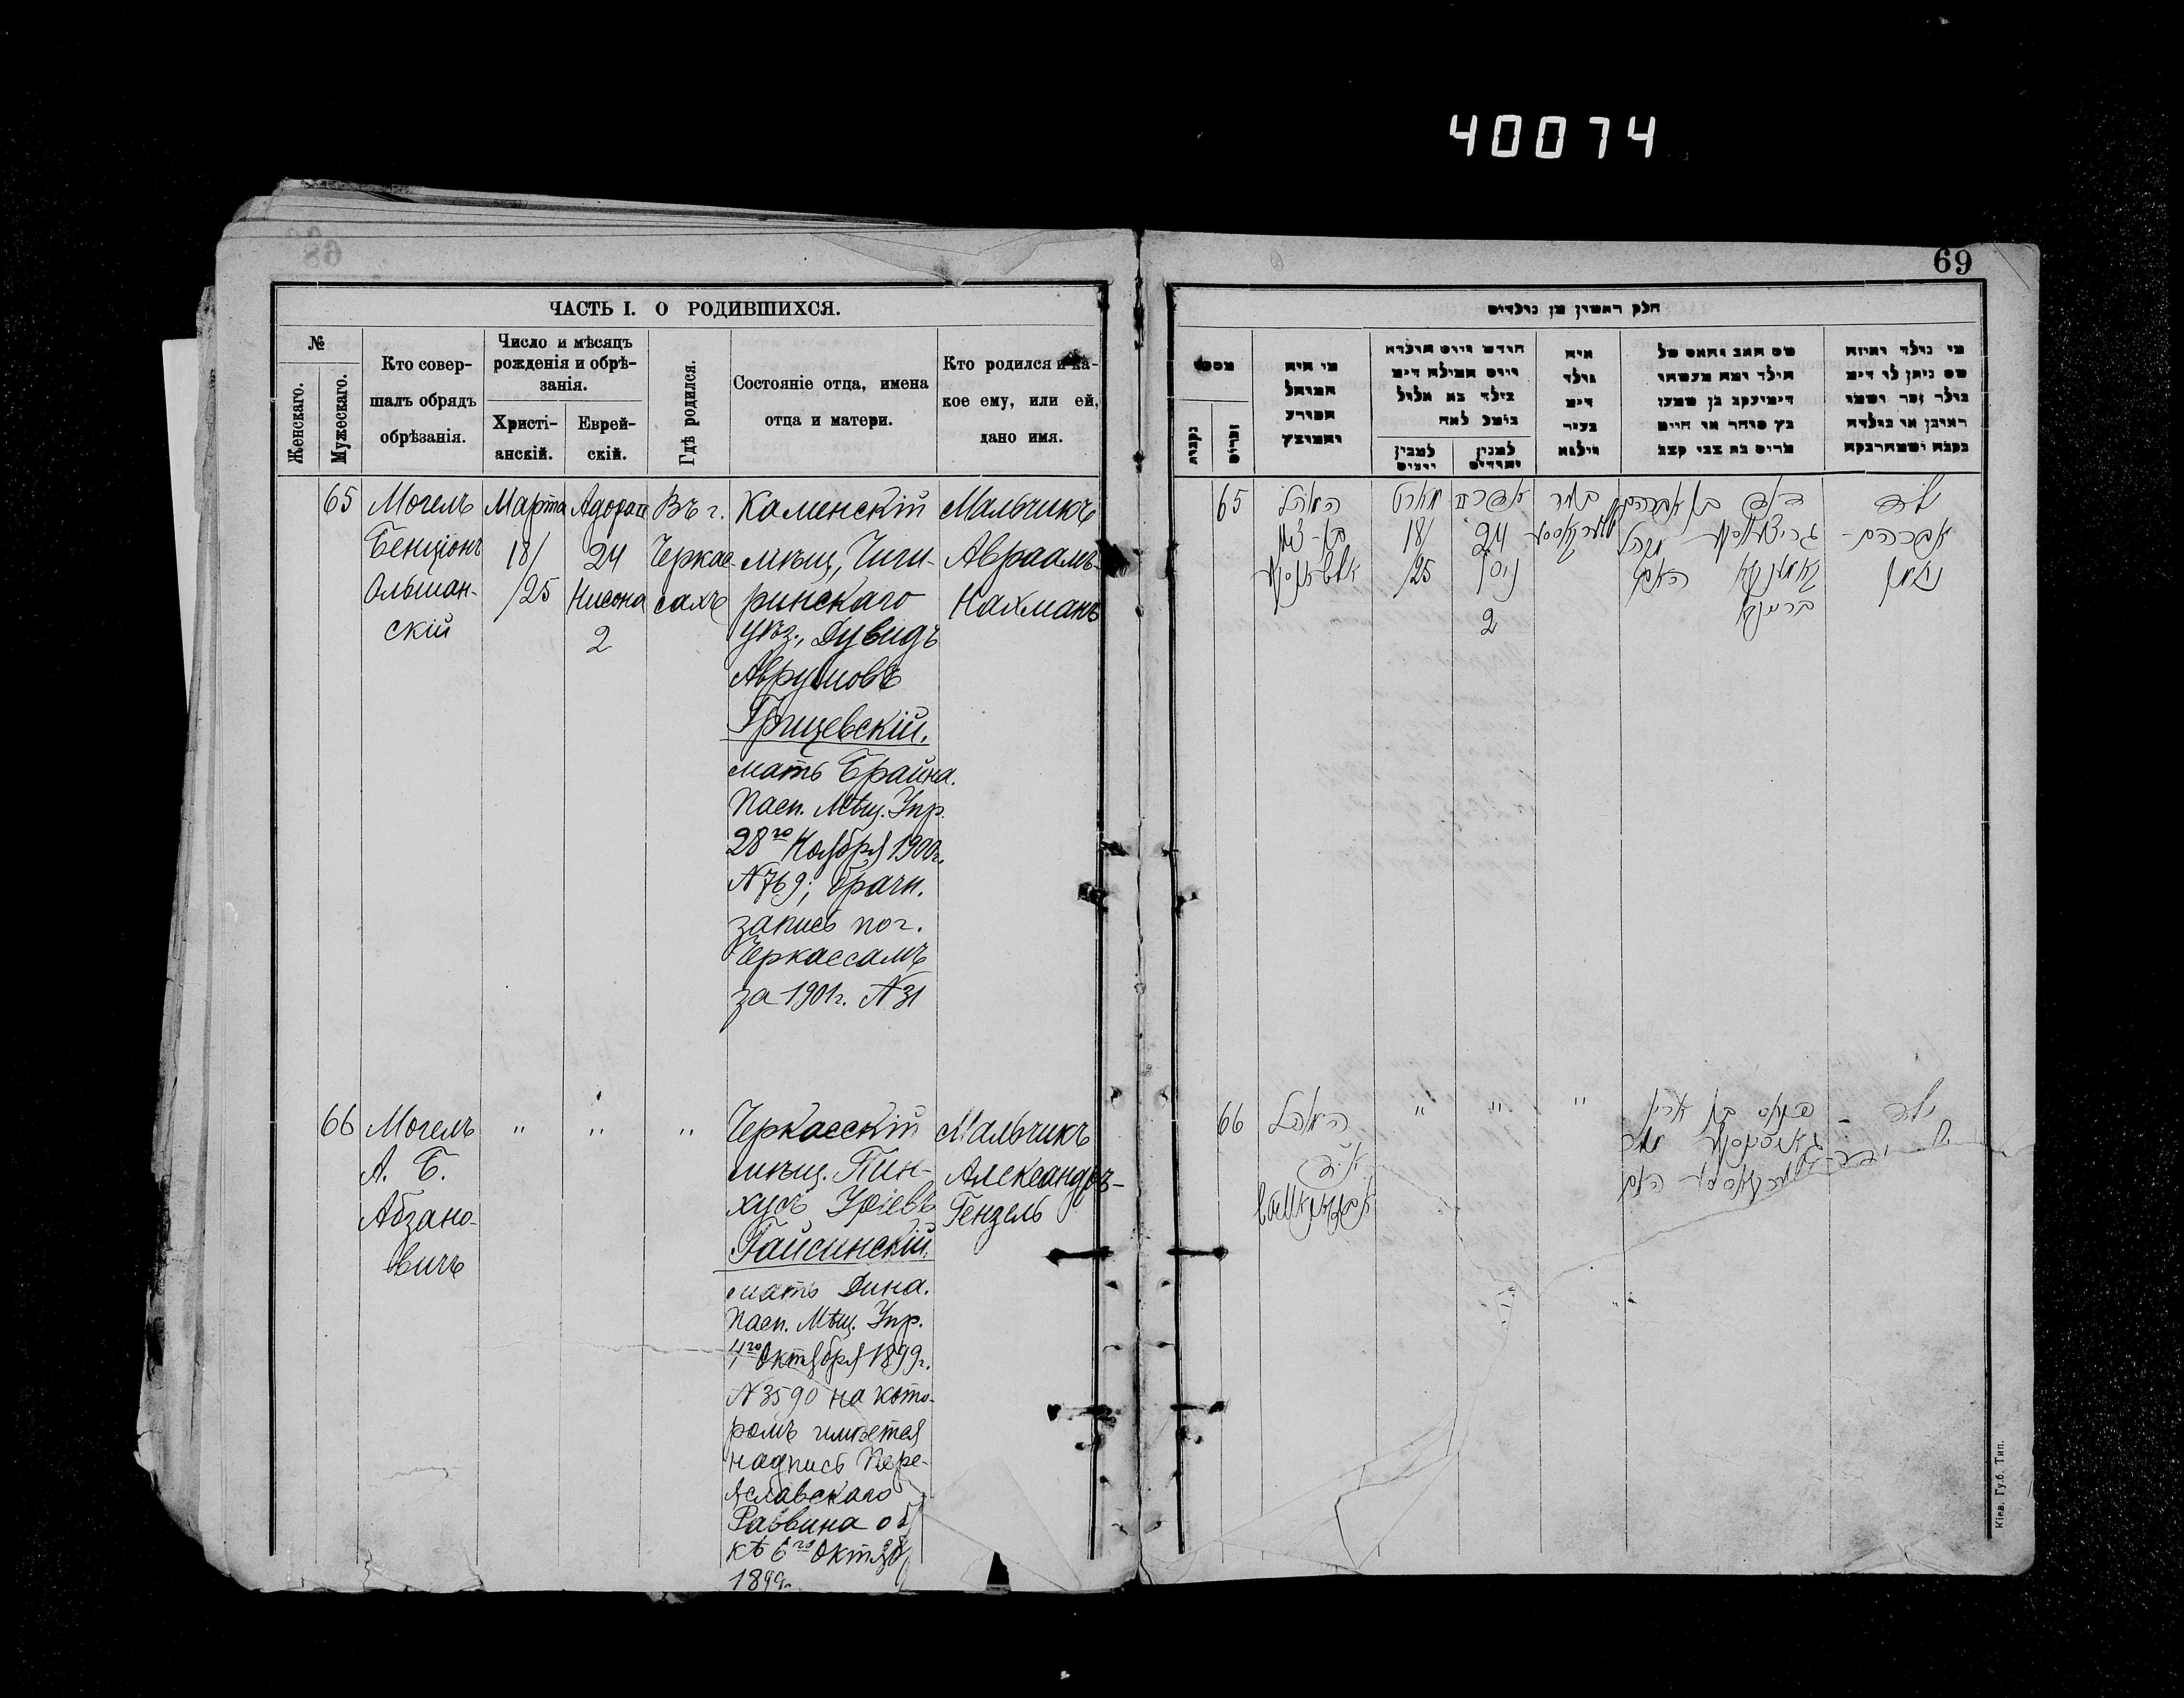 40074
69
ЧАСТЬ I. О РОДИВШИХСЯ.
№
Женскаго.
Мужескаго.
Кто совер-
шалъ обрядъ
обрѣзанія.
Число и мѣсяцъ
рожденія и обрѣ-
занія.
Христі-
анскій.
Еврей-
скій.
Гдѣ родился.
Состояніе отца, имена
отца и матери.
Кто родился и ка-
кое ему, или ей,
дано имя.
65
Могель
Бенціонъ
Ольшан-
скій
Марта
18/
/25
Адора II
24
Нисона
2
Въ г.
Черкас-
сахъ
Каменскій
мѣщ., Чиги-
ринскаго
уѣз., Дувидъ
Аврумовъ
Грицевскій.
мать Брайна.
Пасп. Мѣщ. Упр.
28го Ноября 1900г.
№769; брачн.
запись по г.
Черкассамъ
за 1901г. №31
Мальчикъ
Авраамъ-
Нахманъ
66
Могель
А. Б.
Абзано-
вичъ
" " "
Черкасскій
мѣщ. Пин-
хусъ Уріевъ
Гайсинскій.
мать Дина.
Пасп. Мѣщ. Упр.
4го Октября 1899г.
№3590 на кото-
ромъ имѣется
надпись Пере-
яславскаго
Раввина о б
кѣ 6го Октяб
1899г.
Мальчикъ
Александръ-
Гензель
חלק ראשון מן נולדים
מספר
נקבות
זכרים
מי היה
המוהל
חודש ויום הולדת
ויום המילה
למנין
איה
נולד
בעיר
ווילנא
שם האב והאם של
הילד
דימיעקב בן שמעון
כץ סוחר או חיים
מרים בת צבי קצב
מי נולד ואיזה
שם ניתן לו
ראובן או נולדה
נקבה ושמה רבקה
65
המוהל
בן-ציון
מארט
18/
/25
24
ניסן
2
דוד בן אברהם
האם
אברהם-
נחמן
66
המוהל
" " "
האם
Кіев. Губ. Тип.